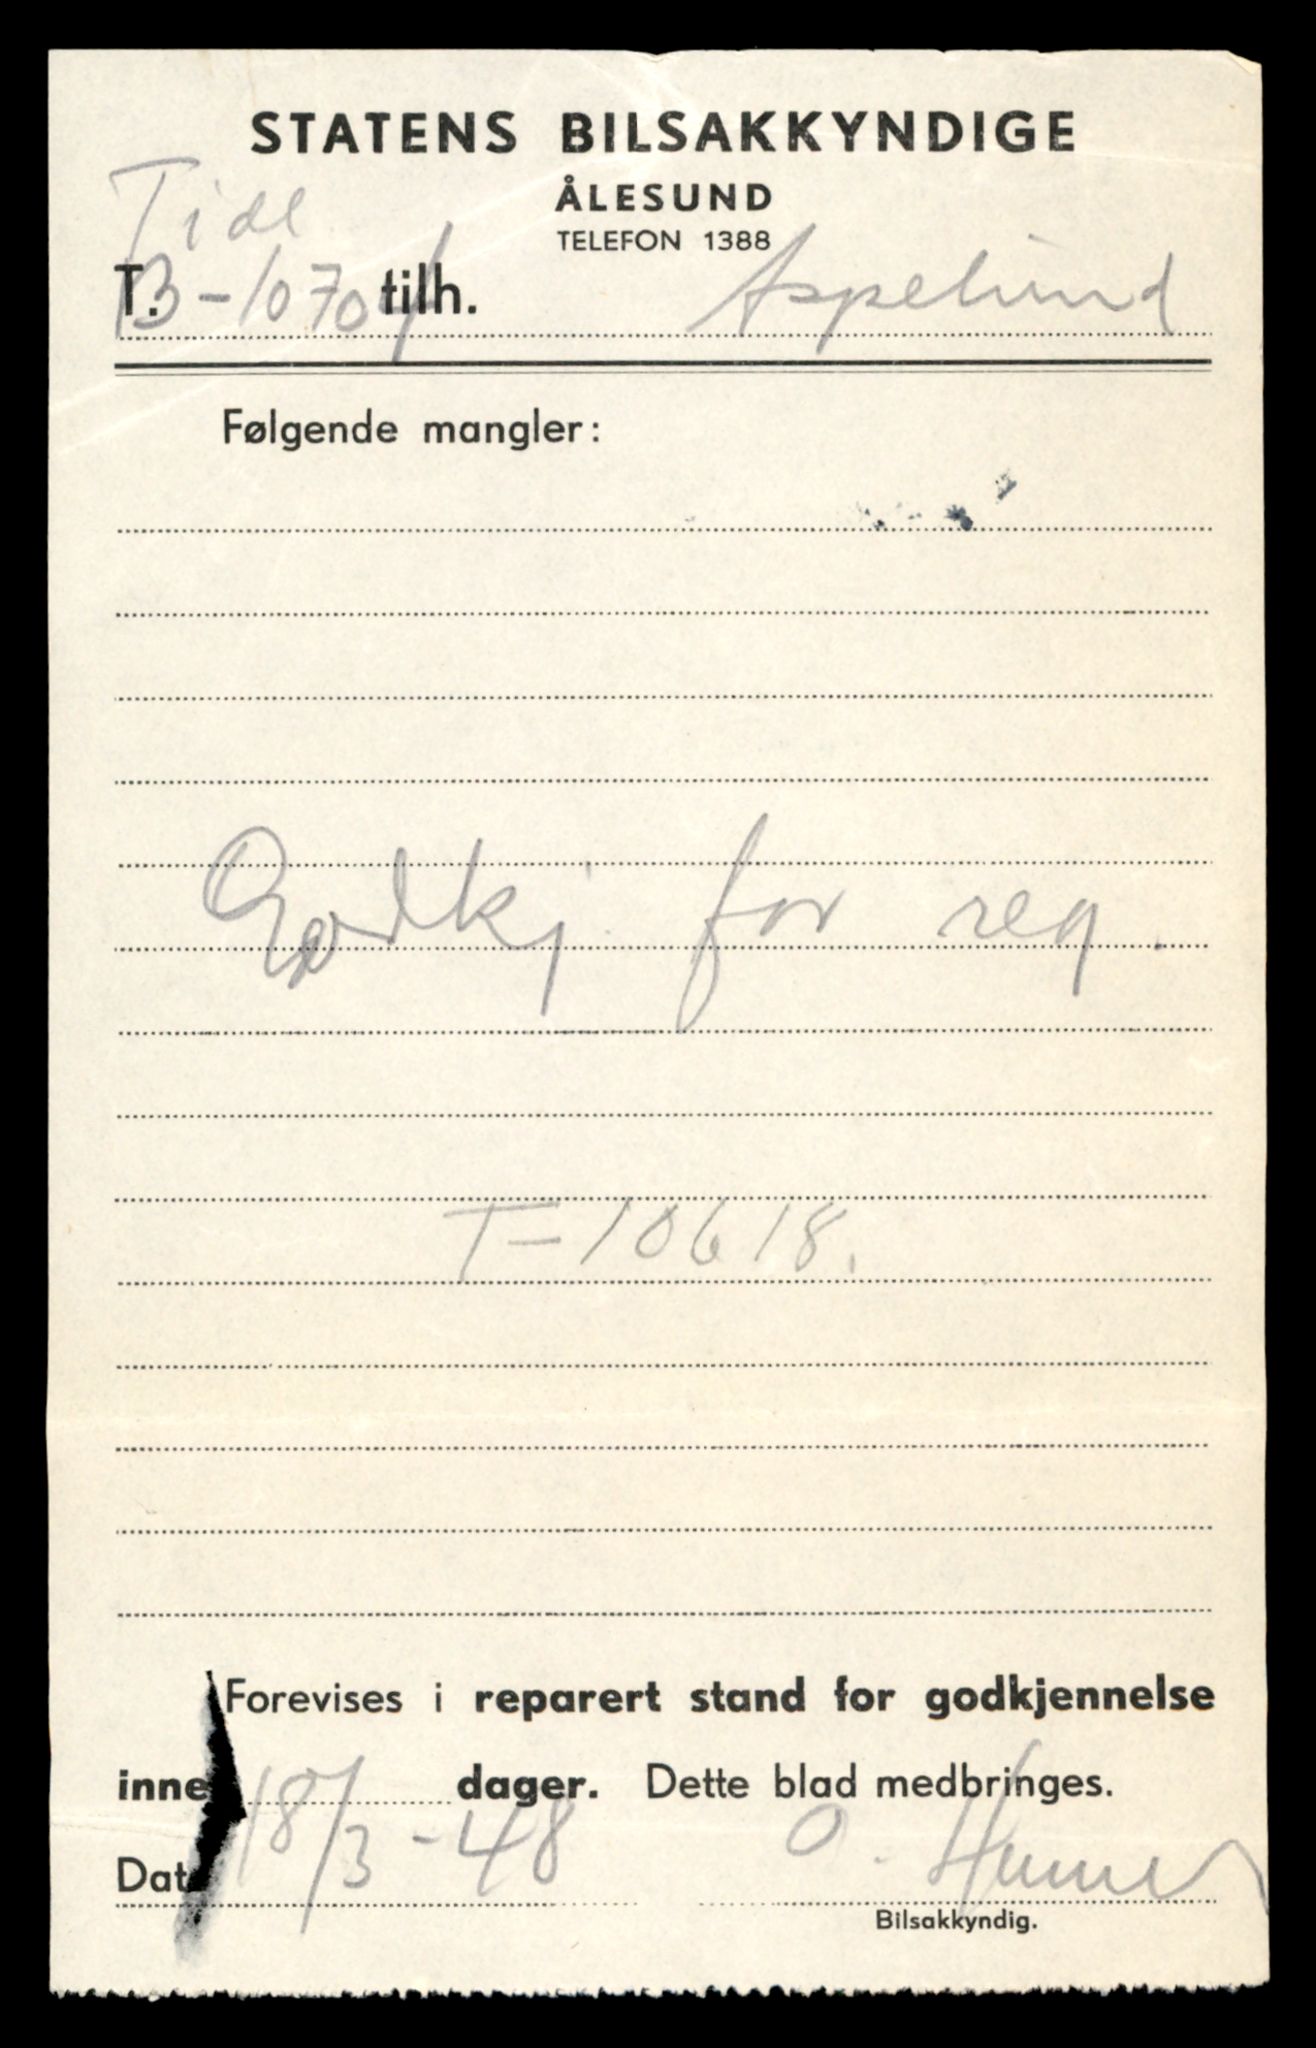 STATENS BILSAKKYNDIGE
ÅLESUND
TELEFON 1388
Tidl
T. B-10704 tilh. Aspelund
Følgende mangler:
Godkj for reg.
T-10618.
Forevises i reparert stand for godkjennelse
inne 18/3-48 dager. Dette blad medbringes.
Dat O.
Bilsakkyndig.